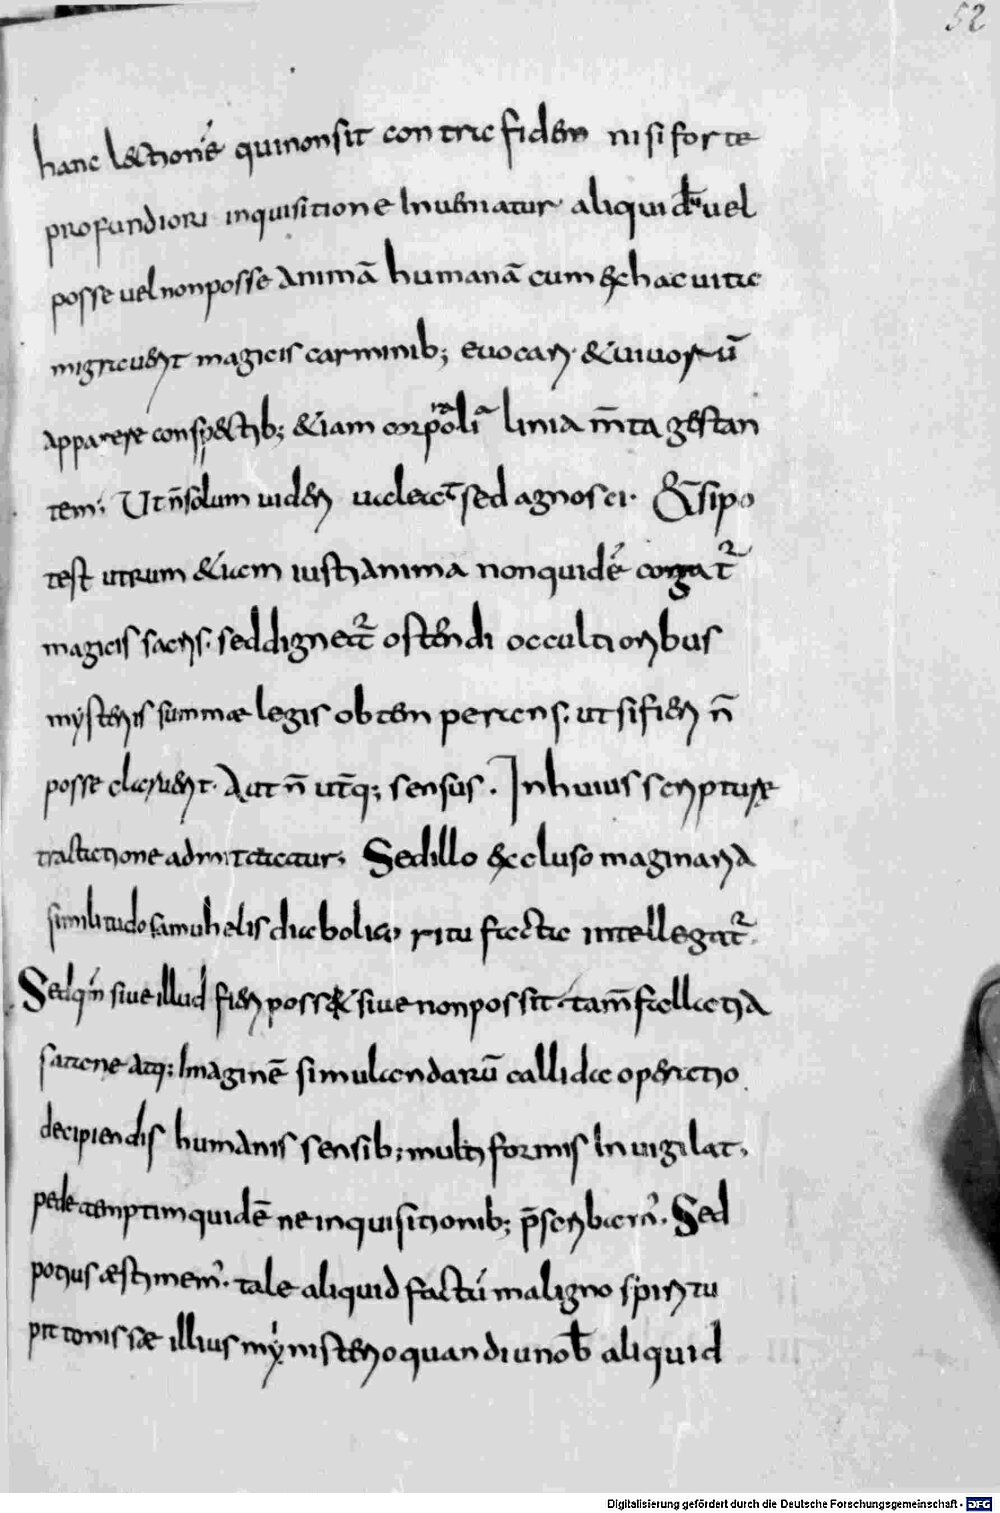 52
hanc lectionē quinonsit contra fidem nisi forte
profundiori inquisitione Inueniatur aliquid uel
posse uel nonposse animā humanā cum exhac uita
migrauerit magicis carminib; euocari &uiuorū
apparere conspectib; &iam corporali liniam̄ta gestan
tem; Ut ñsolum uideri ualeat sed agnosci. & si po
test utrum &iam iusti anima nonquidē cogat̄
magicis sacris. seddignet̄ ostendi occultioribus
mysteriis summæ legis obtemperans. ut si fieri ñ
posse claruerit. Aut ñ utq; sensus. In huius scripture
tractatione admittatur; Sed illo excluso maginaria
similitudo samuhelis diabolico ritu facta intellegat̄.
Sedqm̄ siue illud fieri poss& siue nonpossit. tam̄ fallatia
satane atq; Imaginē simulandarū callida operatio
decipiendis humanis sensib; multiformis Inuigilat,
pedetemptim quidē ne inquisitionib; p̄scribam. Sed
potius æstimem. tale aliquid factū maligno spiritu
pitonissæ illius mynisterio quandi unob aliquid
Digitalisierung gefördert durch die Deutsche Forschungsgemeinschaft - DFG